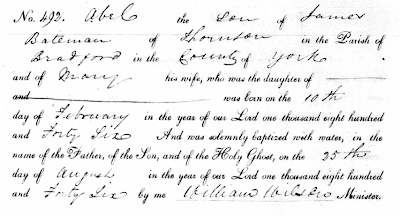 No. 492. Abel the Son of James
Bateman of Thornton in the Parish of
Bradford in the County of York
and of Mary his wife, who was the daughter of
and was born on the 10th
day of February in the year of our Lord one thousand eight hundred
and Forty Six And was solemnly baptized with water, in the
name of the Father, of the Son, and of the Holy Ghost, on the 25th
day of August in the year of our Lord one thousand eight hundred
and Forty Six by me William Wilson Minister.